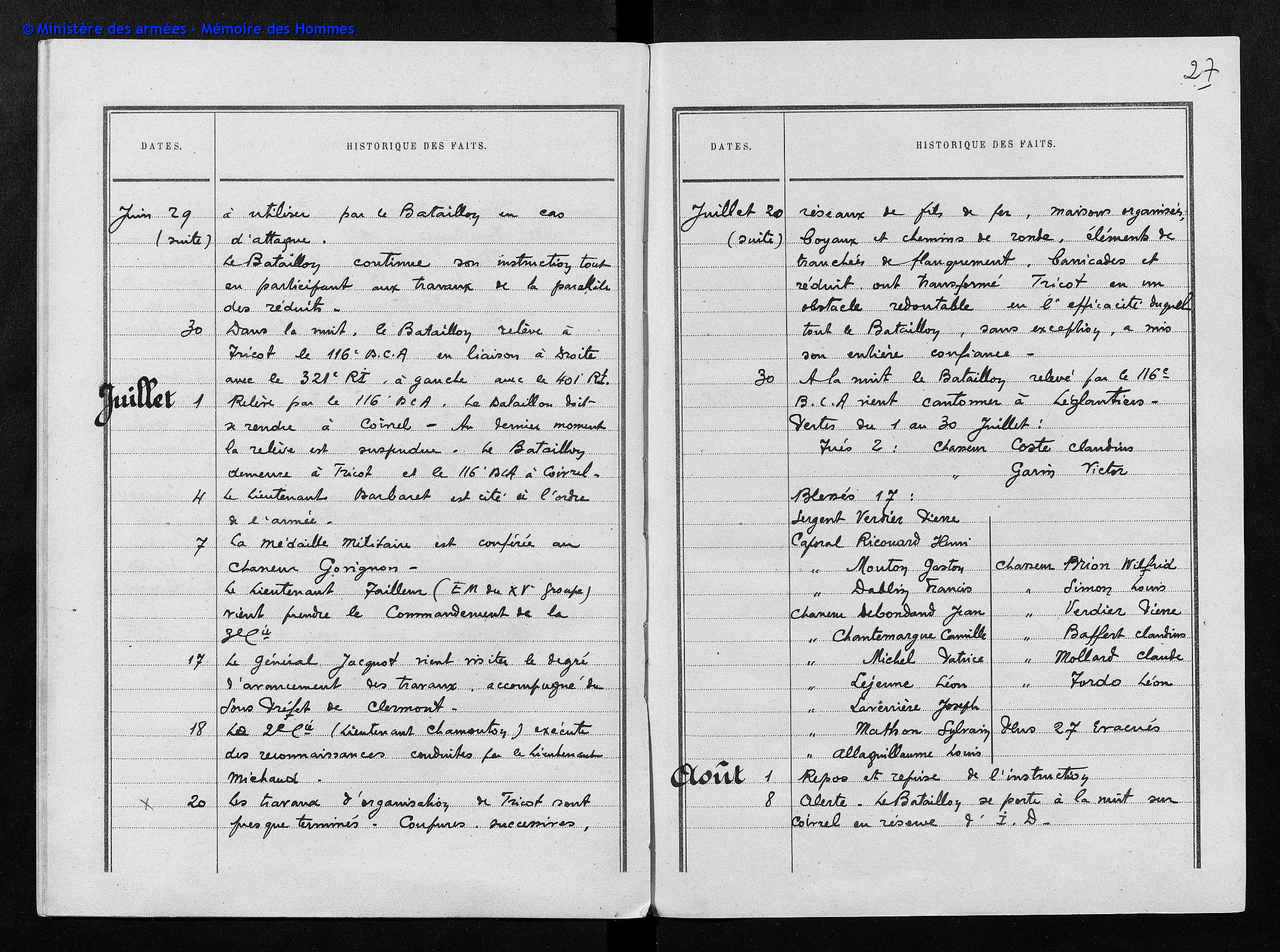 © Ministère des armées - Mémoire des Hommes
DATES. HISTORIQUE DES FAITS.
Juin 29 à utiliser par le Bataillon en cas
(suite) d'attaque.
Le Bataillon continue son instruction tout
en participant aux travaux de la parallèle
des réduits.
30 Dans la nuit, le Bataillon relève à
Tricot le 116e B.C.A en liaison à Droite
avec le 321e RI, à gauche avec le 401e RI.
Juillet 1 Relève par le 116e BCA. Le Bataillon doit
se rendre à Coivrel - Au dernier moment
la relève est suspendue. Le Bataillon
demeure à Tricot et le 116e BCA à Coivrel-
4 Le Lieutenant Barbaret est cité à l'ordre
de l'armée-
7 La médaille Militaire est conférée au
Chasseur Gorignon-
Le Lieutenant Failleur (EM du XVe Groupe)
vient prendre le Commandement de la
Cie
17 Le Général Jacquot vient visiter le degré
d'avancement des travaux, accompagné du
Sous Préfet de Clermont-
18 La 2e Cie (Lieutenant Chamontoy) exécute
des reconnaissances conduites par le Lieutenant
Michaud.
x 20 Les travaux d'organisation de Tricot sont
presque terminés - Coupures successives,
27
DATES. HISTORIQUE DES FAITS.
Juillet 20 réseaux de fils de fer, maisons organisées,
(suite) boyaux et chemins de ronde, éléments de
tranchées de flanquement, barricades et
réduit ont transformé Tricot en un
obstacle redoutable en l'efficacité duquel
tout le Bataillon, sans exception, a mis
son entière confiance-
30 A la nuit le Bataillon relevé par le 116e
B.C.A vient cantonner à Léglantiers-
Pertes du 1 au 30 Juillet:
Tués 2: Chasseur Coste Claudius
" Garin Victor
Blessés 17:
Sergent Verdier Pierre
Caporal Ricouard Henri
" Mouton Gaston Chasseur Brion Wilfrid
" Dablin Francis " Simon Louis
Chasseur Debondand Jean " Verdier Pierre
" Chantemargue Camille " Baffert Claudius
" Michel Patrice " Mollard Claude
" Lejeune Léon " Tordo Léon
" Laverrière Joseph
" Mathon Sylvain Plus 27 Evacués
" Allaguillaume Louis
Août 1 Repos et reprise de l'instruction
8 Alerte - Le Bataillon se porte à la nuit sur
Coivrel en réserve d'I.D-